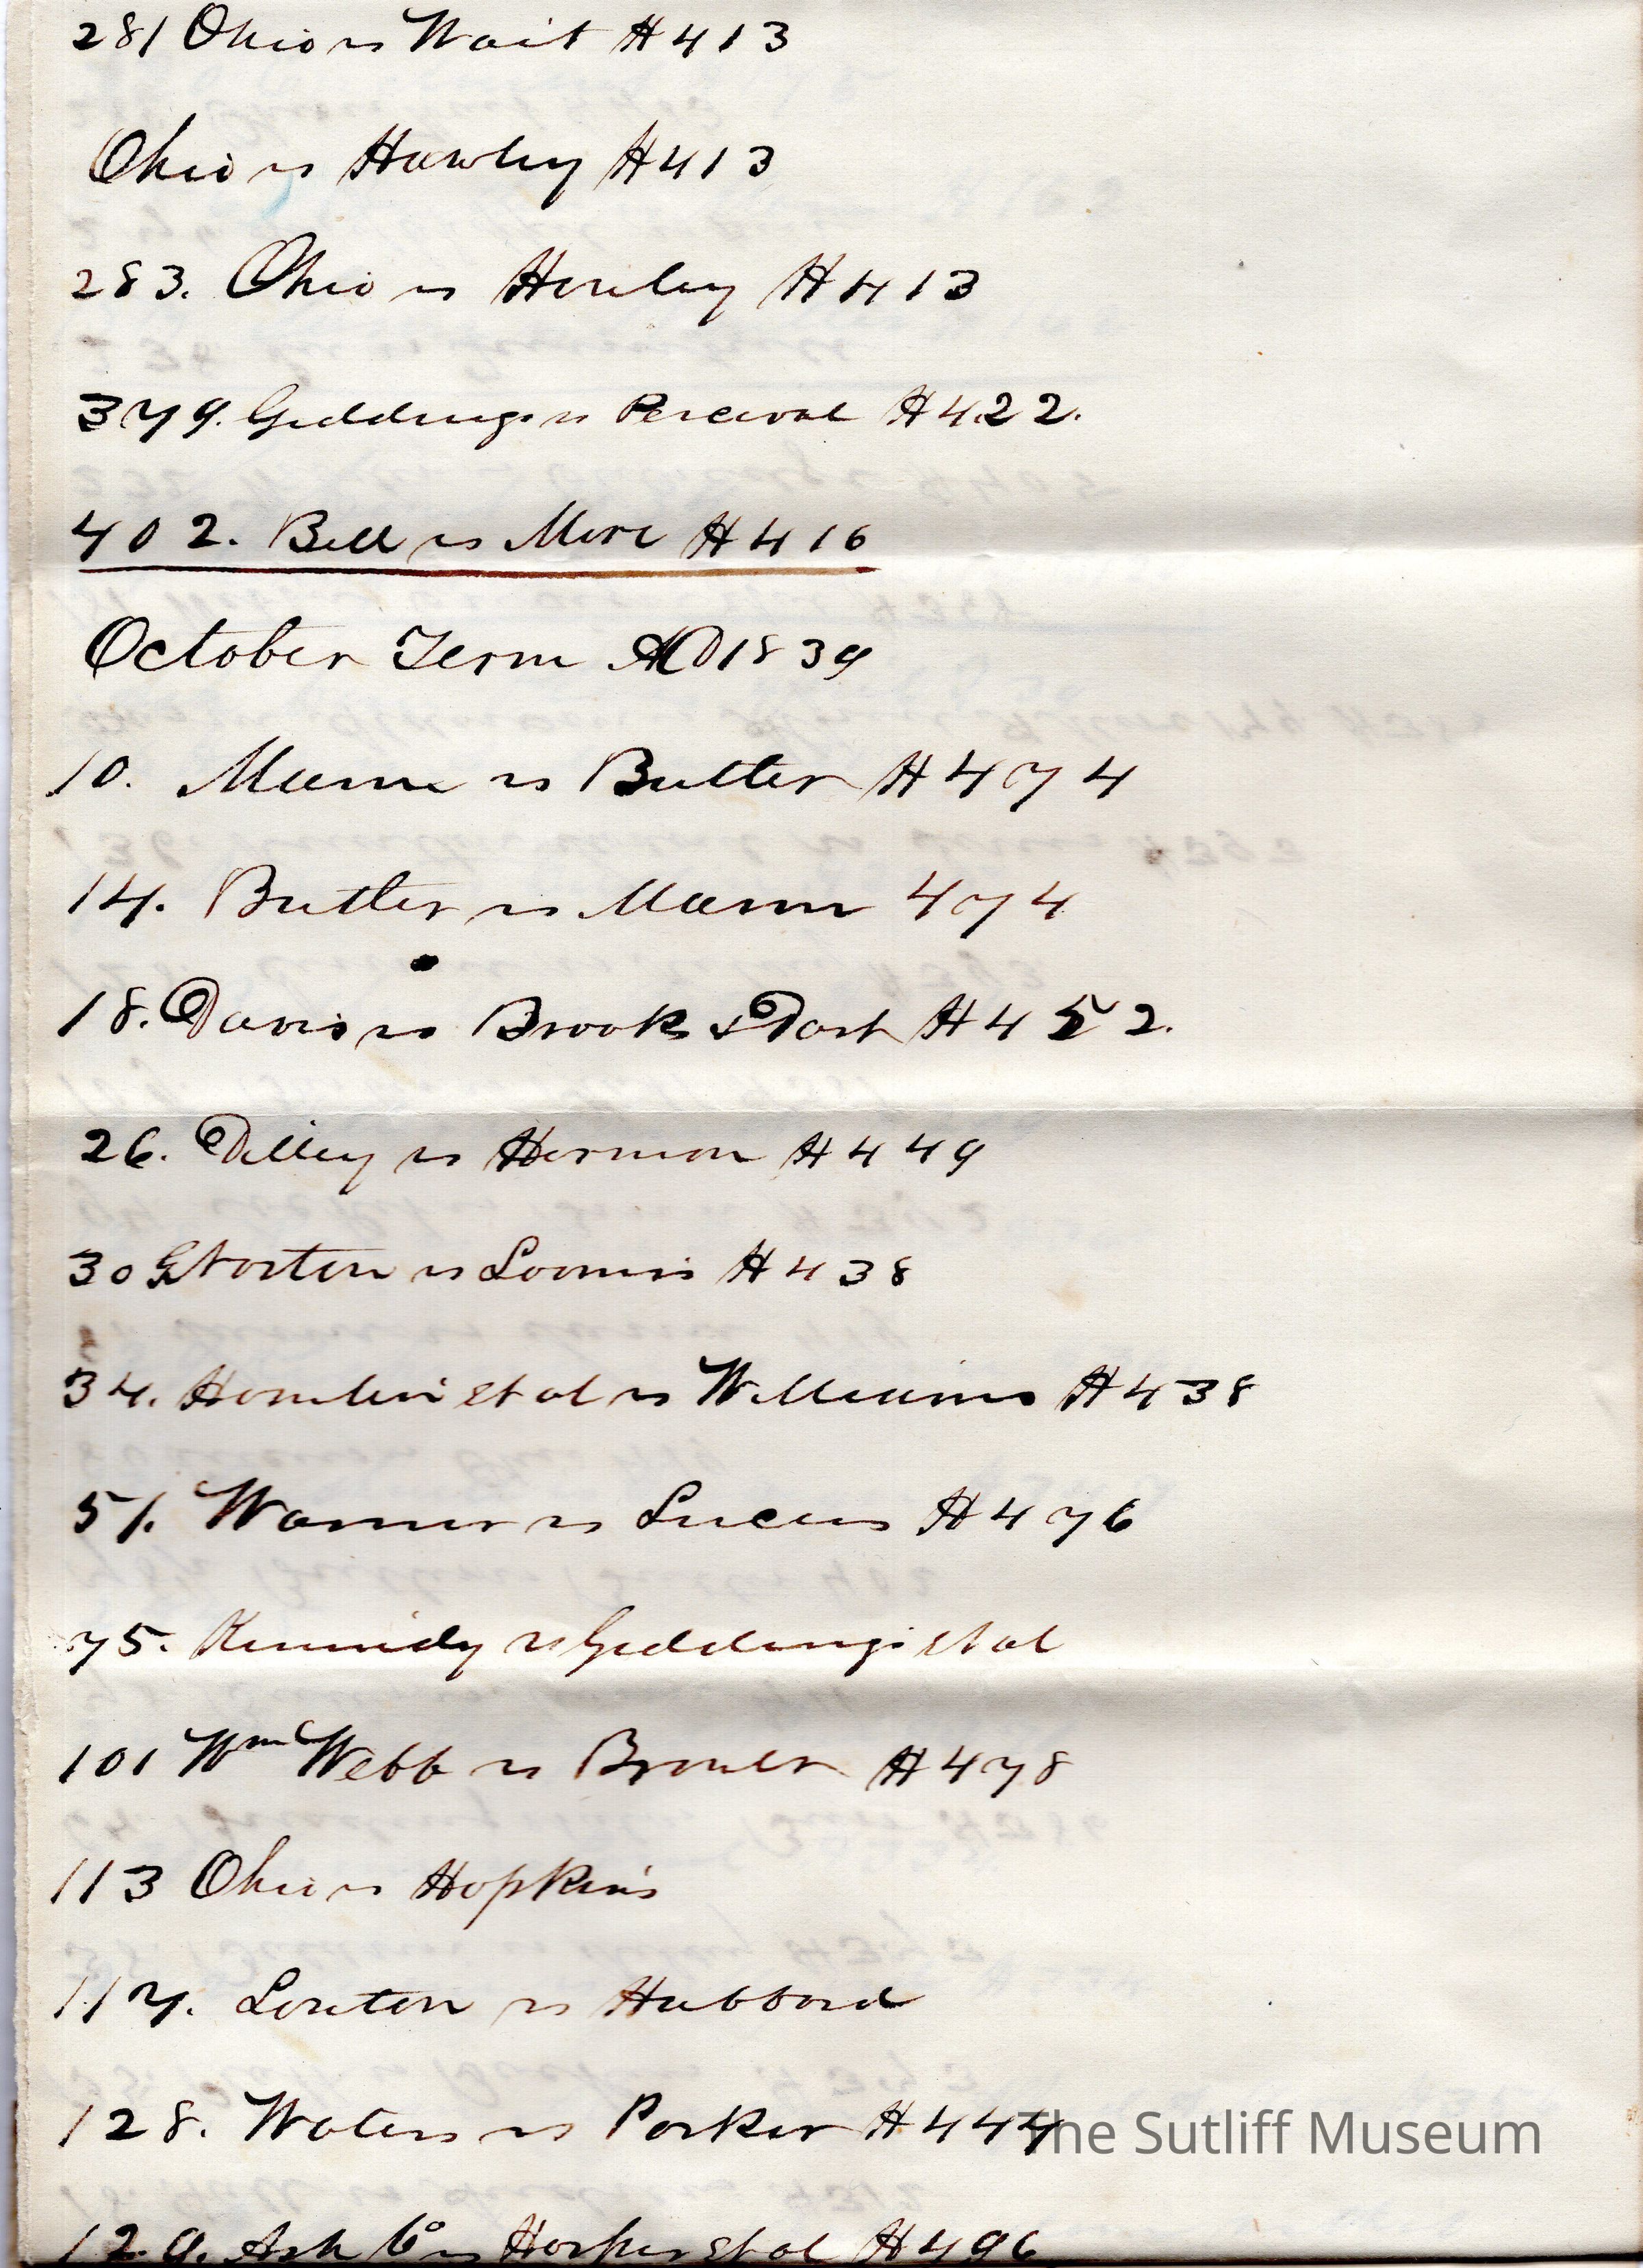 281 Ohio vs Wait H 413
Ohio vs Hawley H 413
283. Ohio vs Hawley H 413
379. Giddings vs Perceval H 422.
402. Bell vs More H 416
October Term AD 1839
10. Mann vs Butler H 474
14. Butler vs Mann 474
18. Davis vs Brooks & Dart H 452.
26. Dilley vs Harmon H 449
30 Norton vs Loomis H 438
34. Hamlin et al vs Williams H 438
51. Warner vs Lucus H 476
75. Kennidy vs Giddings et al
101 Wm Webb vs Brower H 478
113 Ohio vs Hopkins
117. Louten vs Hubbard
128. Waters vs Parker H 444
129. Ash Co vs Harper et al H 496
The Sutliff Museum